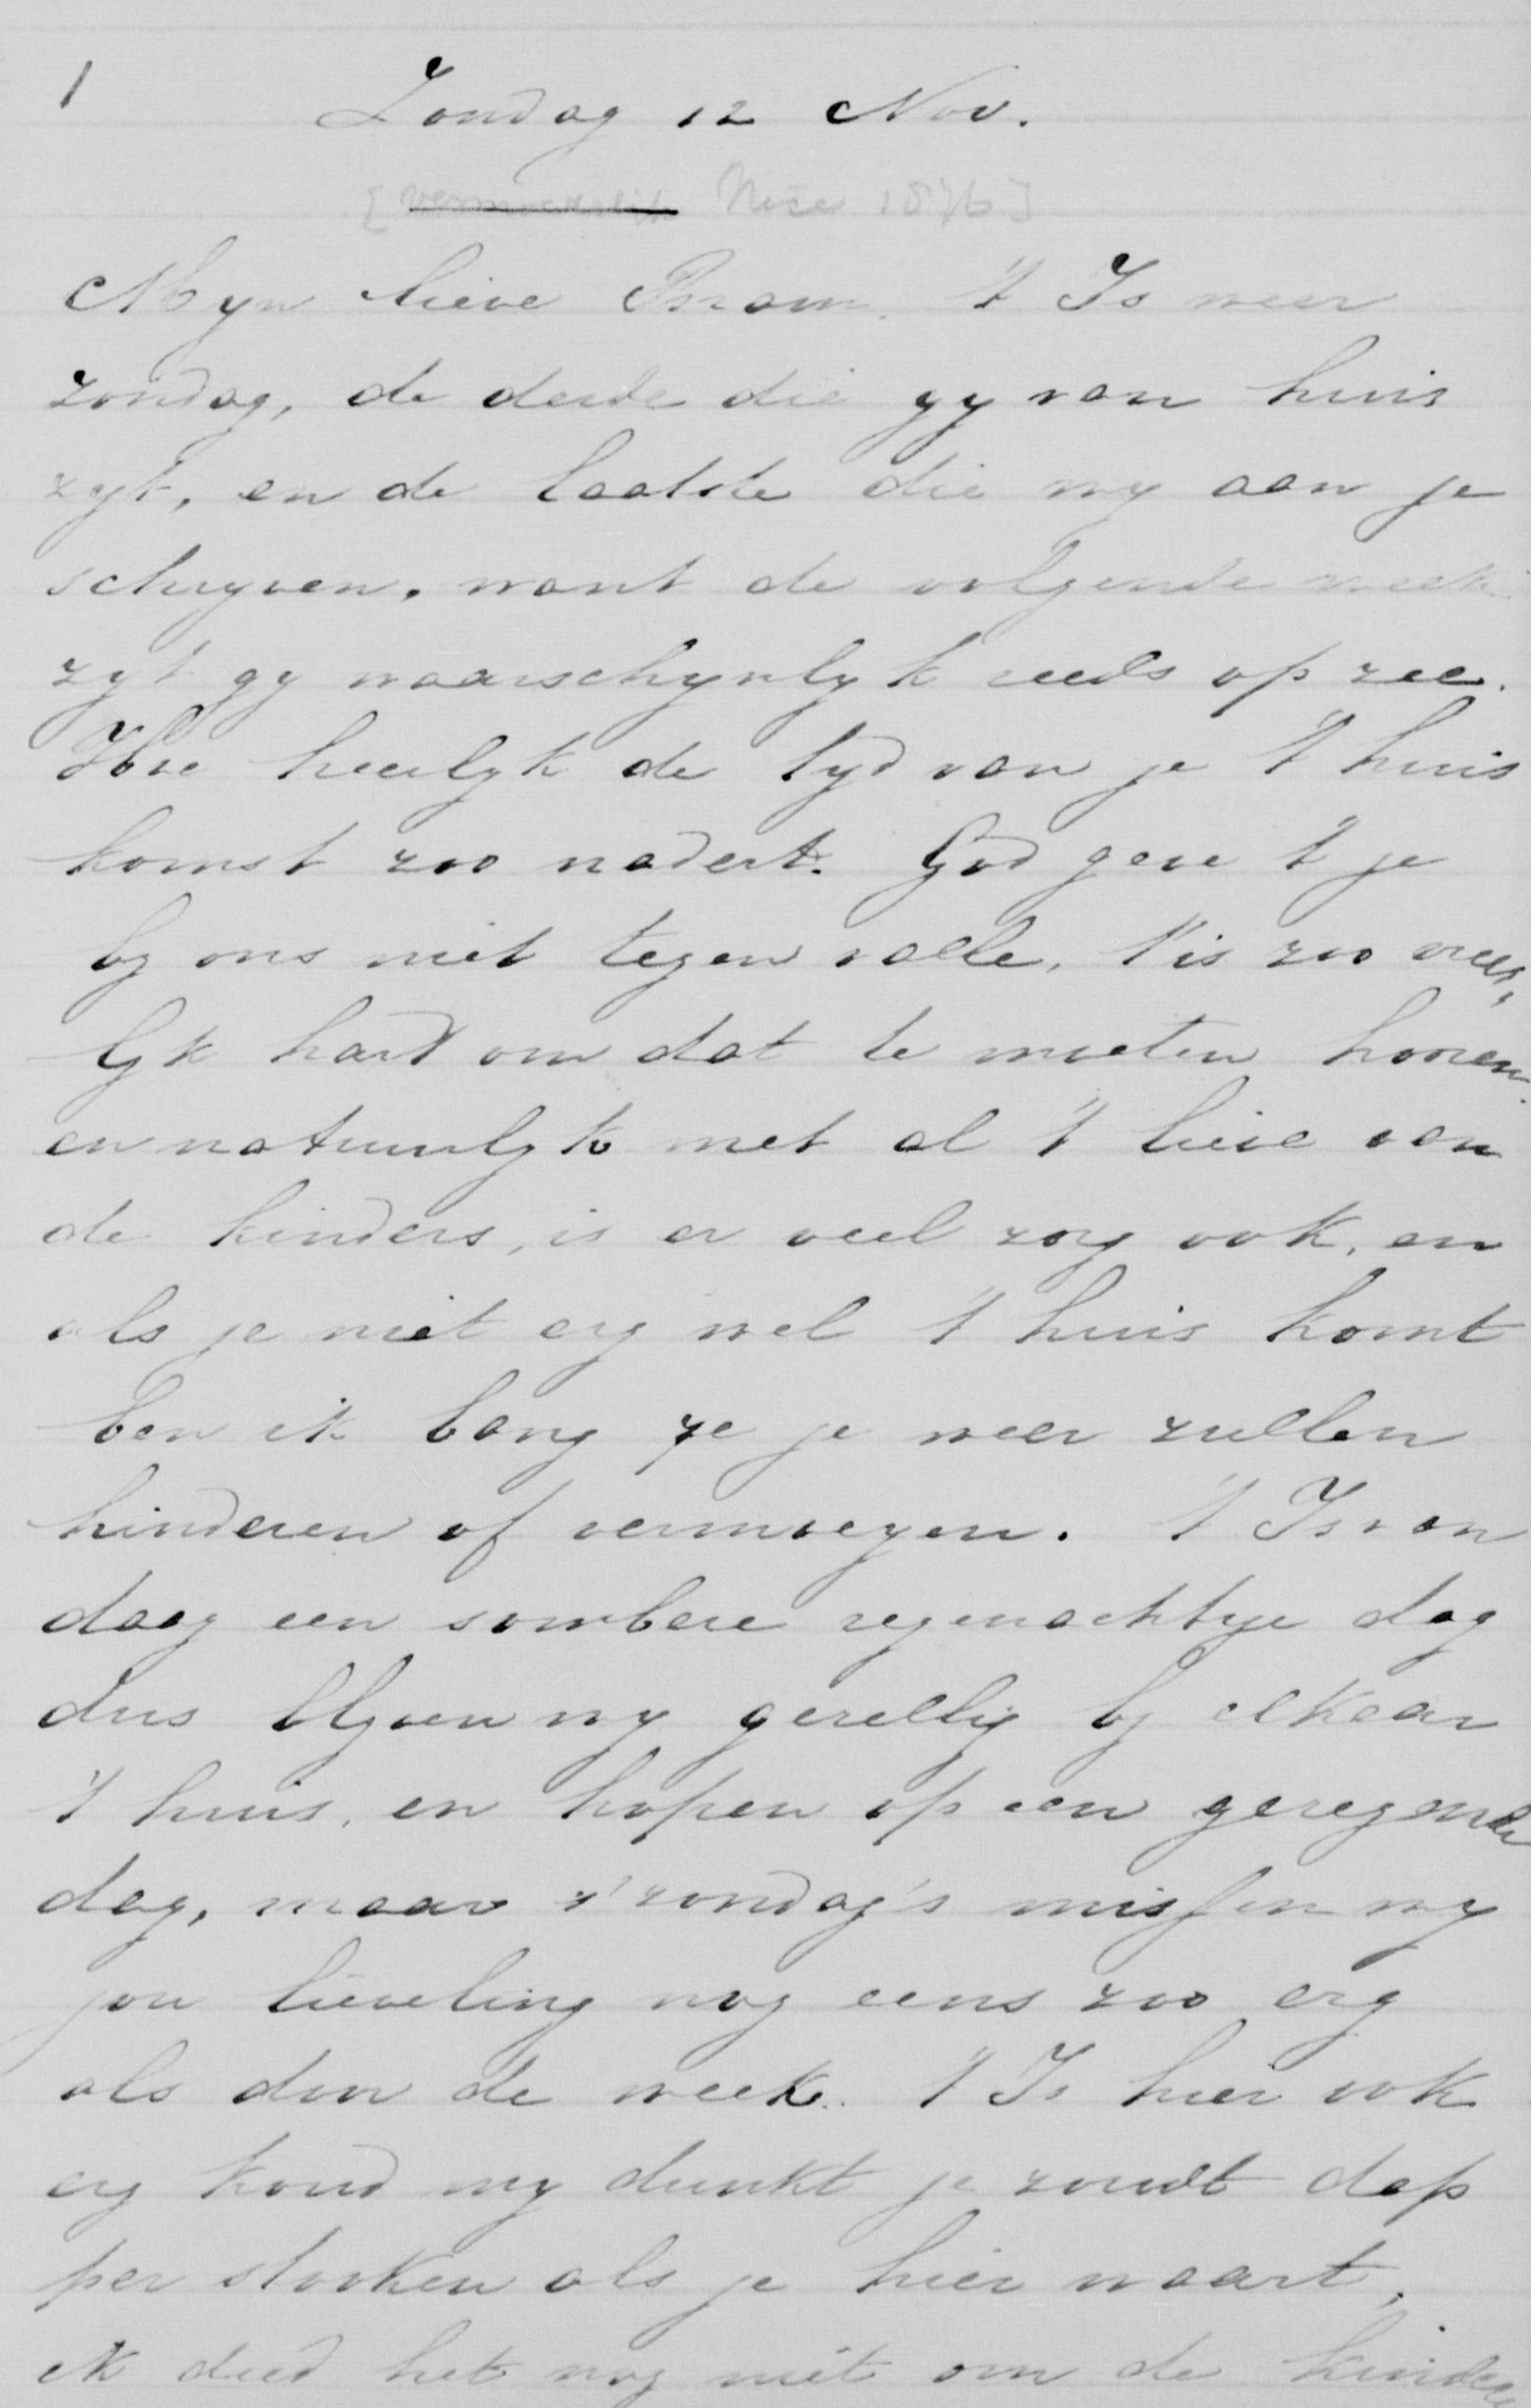 1
Zondag 12 Nov.
[vermoedelijk Nice 1876]
Myn lieve Bram. 't Is weer
zondag, de derde die gy van huis
zyt, en de laatste die wy aan je
schryven. want de volgende week
zyt gy waarschynlyk reeds op zee.
Hoe heerlyk de tyd van je 't huis
komst zoo nadert. God geve 't je
by ons niet tegen valle, 't is zoo vrees,
lyk hard om dat te moeten hooren.
en natuurlyk met al 't lieve van
de kinders, is er veel zorg ook, en
als je niet erg wel 't huis komt
ben ik bang ze je weer zullen
hinderen of vermoeyen. 't Is van
daag een sombere regenachtige dag
dus blyven wy gezellig by elkaar
't huis, en hopen op een gezegende
dag, maar z'zondag's missen wy
jou lieveling nog eens zoo erg
als door de week. 't Is hier ook
erg koud my dunkt je zoudt dap
per stooken als je hier waart,
ik deed het nog niet om de kinders